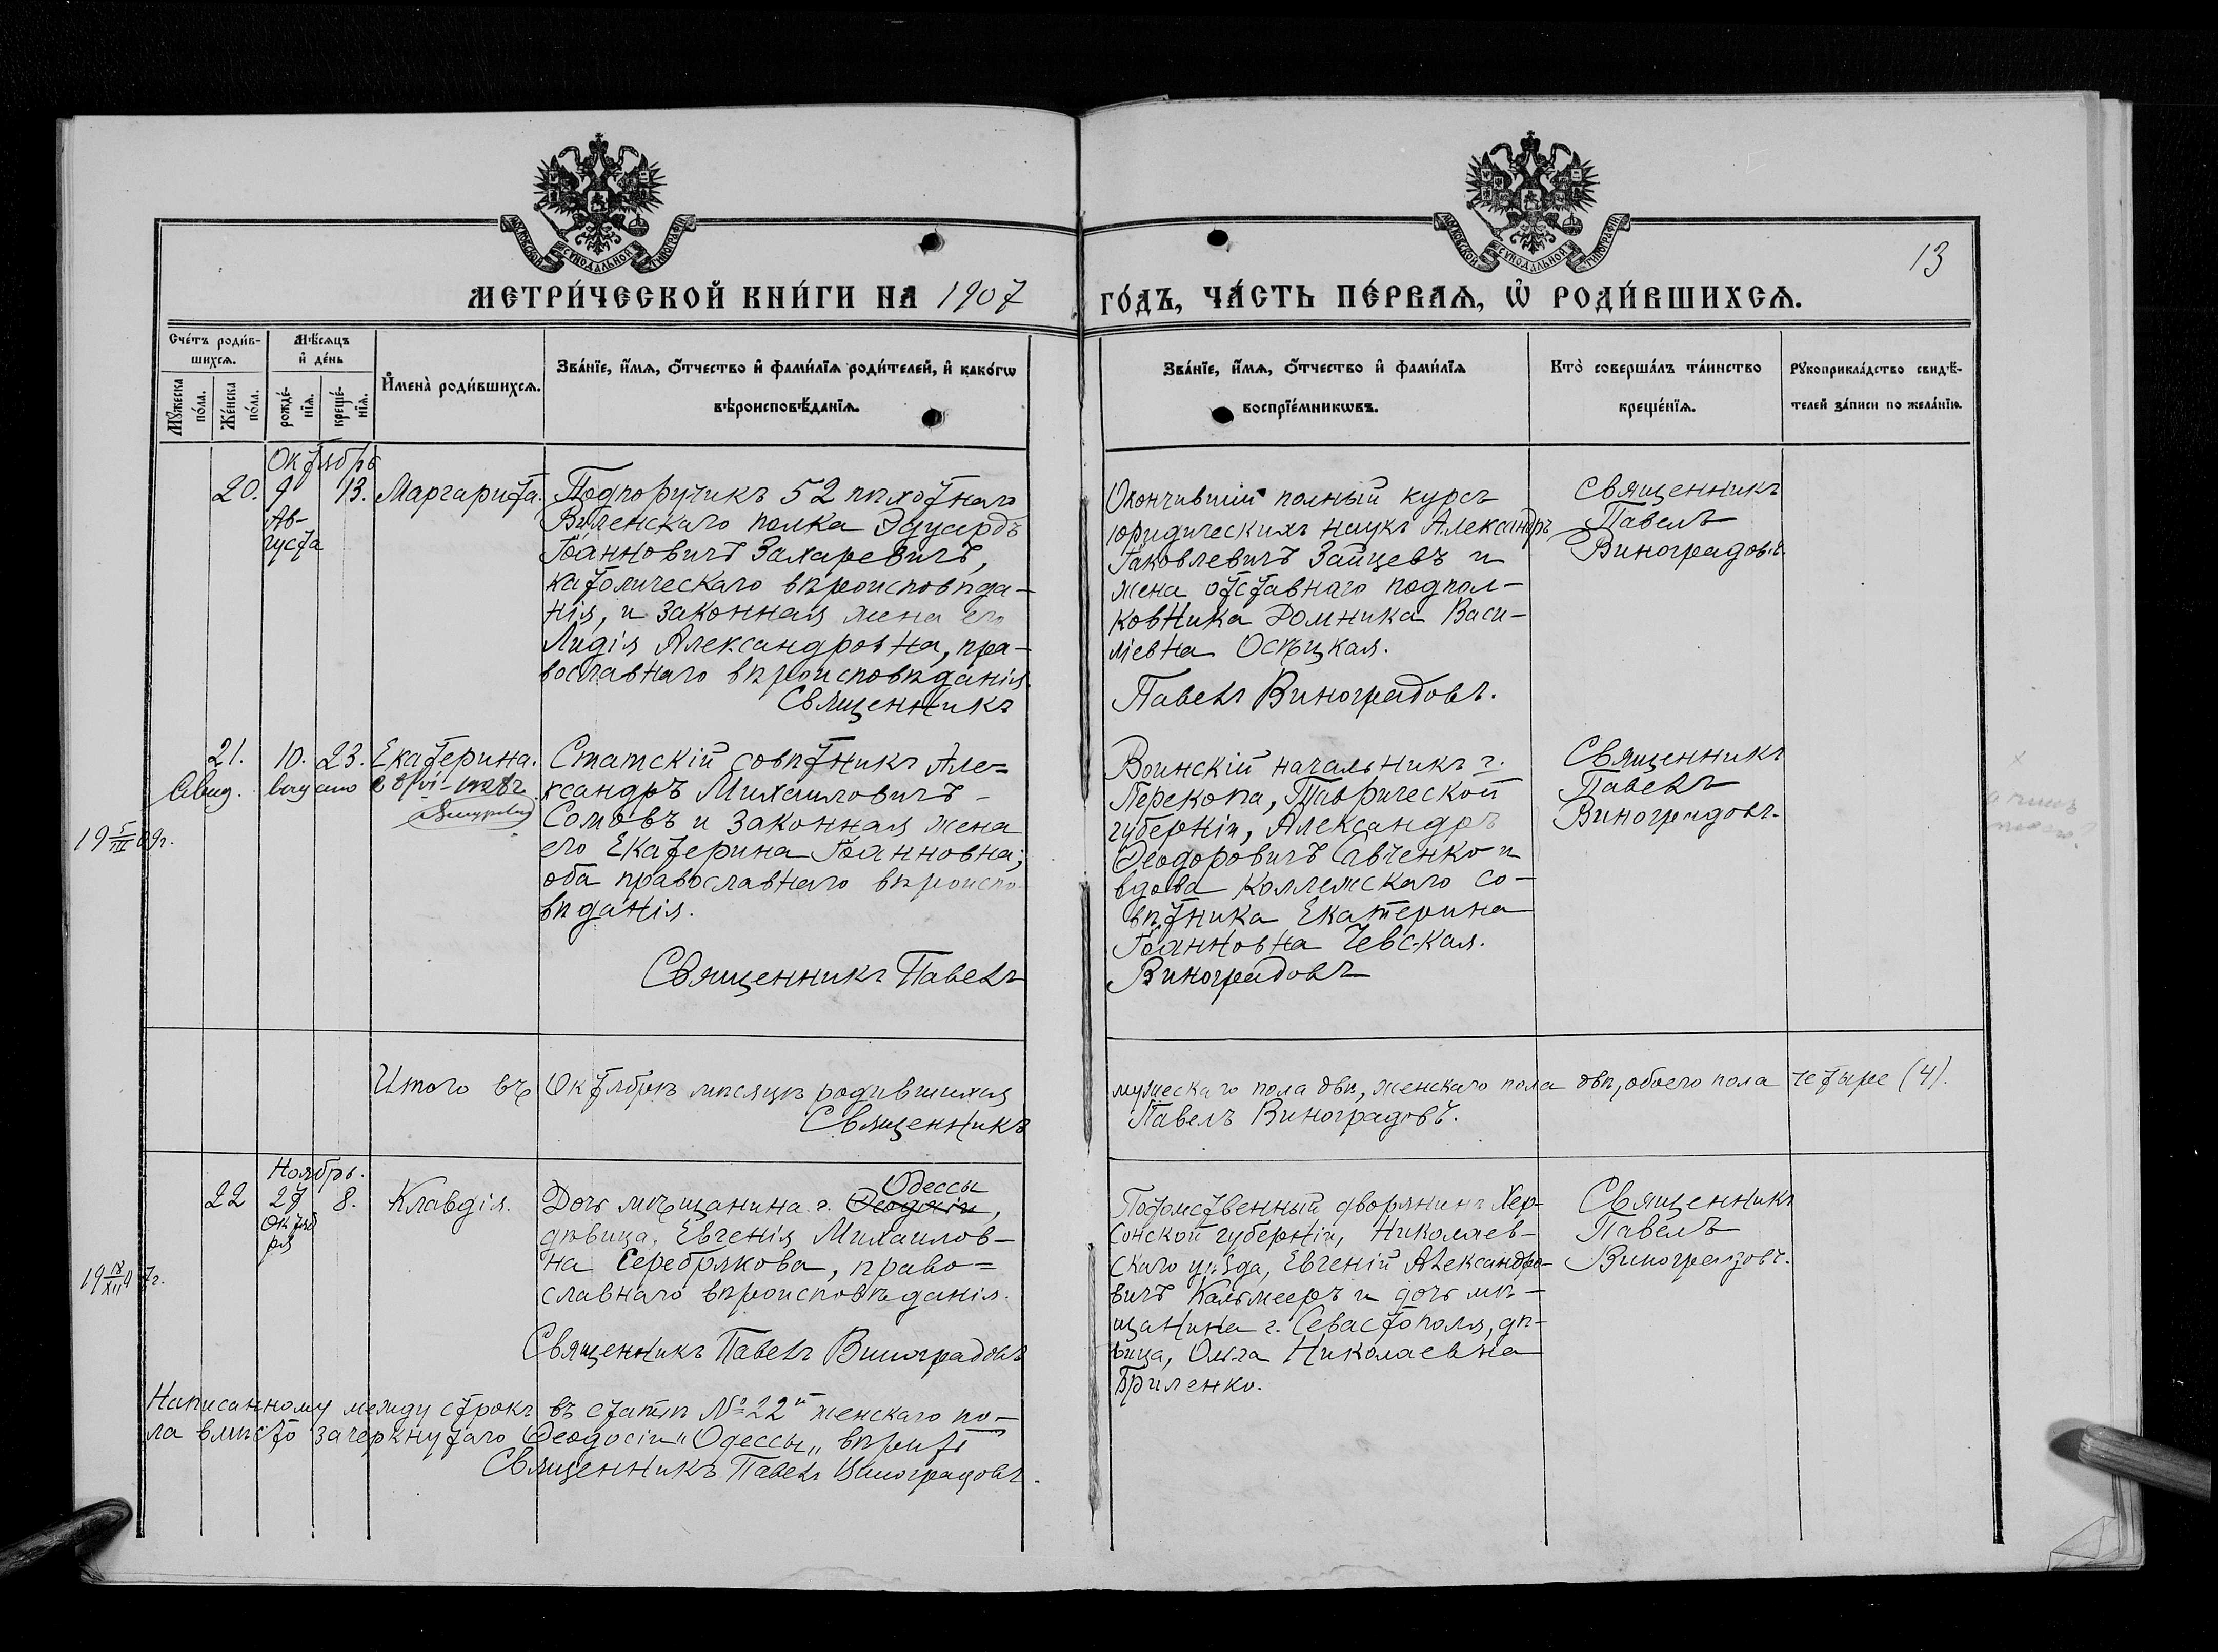 МОСКОВСКОЙ СѴНОДАЛЬНОЙ ТИПОГРАФІИ
МОСКОВСКОЙ СѴНОДАЛЬНОЙ ТИПОГРАФІИ
13
МЕТРИ́ЧЕСКОЙ КНИ́ГИ НА 1907
ГО́ДЪ, ЧА́СТЬ ПЕ́РВАѦ, Ѡ҆ РОДИ́ВШИХСѦ.
Сче́тъ роди́в-
шихсѧ.
Мꙋ́жеска по́ла.
Же́нска по́ла.
Мѣ́сѧцъ
и҆ де́нь
рожде́-
нїѧ.
креще́-
нїѧ.
И҆мена̀ роди́вшихсѧ.
Зва́нїе, и҆́мѧ, ѻ҆́тчество и҆ фами́лїѧ роди́телей, и҆ како́гѡ
вѣроисповѣ́данїѧ.
Зва́нїе, и҆́мѧ, ѻ҆́тчество и҆ фами́лїѧ
воспрїе́мникѡвъ.
Кто̀ соверша́лъ та́инство
креще́нїѧ.
Рꙋкоприкла́дство свидѣ́-
телей за́писи по жела́нїю.
Октября
20. 9 13. Маргарита.
Ав-
густа
Подпоручикъ 52 пѣхотнаго
Виленскаго полка Эдуардъ
Іоанновичъ Захаревичъ,
католическаго вѣроисповѣда-
нія, и законная жена его
Лидія Александровна, пра-
вославнаго вѣроисповѣданія.
Священникъ
Окончившій полный курсъ
юридическихъ наукъ Александръ
Іаковлевичъ Зайцевъ и
жена отставнаго подпол-
ковника Домника Васи-
ліевна Осѣцкая.
Павелъ Виноградовъ.
Священникъ
Павелъ
Виноградовъ.
21. 10. 23. Екатерина.
19 5/III 09г.
Статскій совѣтникъ Але-
ксандръ Михаиловичъ
Сомовъ и законная жена
его Екатерина Іоанновна;
оба православнаго вѣроиспо-
вѣданія.
Священникъ Павелъ
Воинскій начальникъ г.
Перекопа, Таврической
губерніи, Александръ
Ѳеодоровичъ Савченко и
вдова Коллежскаго со-
вѣтника Екатерина
Іоанновна Чевская.
Виноградовъ
Священникъ
Павелъ
Виноградовъ.
Итого въ Октябрѣ мѣсяцѣ родившихся
Священникъ
мужескаго пола два, женскаго пола два, обоего пола четыре (4).
Павелъ Виноградовъ.
Ноябрь.
22 27 8. Клавдія.
Октяб
ря
19 18/XII 07г.
Одессы
Дочь мѣщанина г. Ѳеодосіи,
дѣвица, Евгенія Михаилов-
на Серебрякова, право-
славнаго вѣроисповѣданія.
Священникъ Павелъ Виноградовъ
Потомственный дворянинъ Хер-
сонской губерніи, Николаев-
скаго уѣзда, Евгеній Александро-
вичъ Кальмееръ и дочь мѣ-
щанина г. Севастополя, дѣ-
вица, Ольга Николаевна
Бриленко.
Священникъ
Павелъ
Виноградовъ.
Написанному между строкъ въ статьѣ № 22й женскаго по-
ла вмѣсто зачеркнутаго Ѳеодосіи „Одессы„ вѣрить
Священникъ Павелъ Виноградовъ.